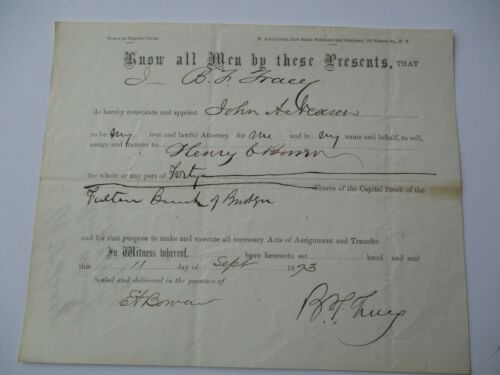 Power to Transfer Stock.
Know all Men by these Presents, THAT
I B. F. Tracy
do hereby constitute and appoint John A.
to be my true and lawful Attorney for me and in my name and behalf, to sell,
assign and transfer to Henry C Bowen
the whole or any part of Forty
Shares of the Capital Stock of the
Fulton Bank of Brooklyn
and for that purpose to make and execute all necessary Acts of Assignment and Transfer.
In Witness whereof, have hereunto set hand and seal
this 11 day of Sept 1873
Sealed and delivered in the presence of
Bowen
B. F. Tracy